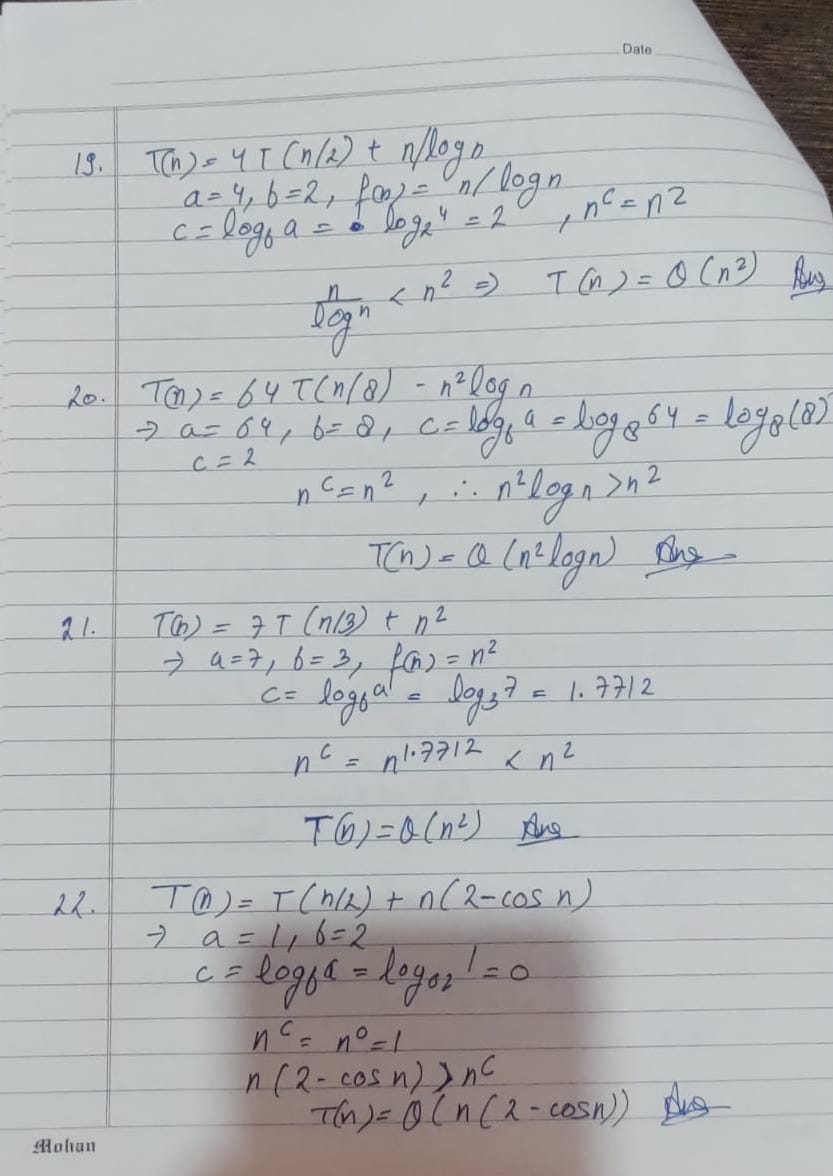 Date
19. T(n) = 4T(n/2) + n/logn
a=4, b=2, f(n) = n/logn
c = log_b a = log_2 4 = 2 , n^c = n^2
n/logn < n^2 ⇒ T(n) = θ(n^2) Ans
20. T(n) = 64T(n/8) - n^2 log n
→ a = 64, b = 8, c = log_b a = log_8 64 = log_8 (8)
c = 2
n^c = n^2 , ∴ n^2 log n > n^2
T(n) = θ(n^2 logn) Ans
21. T(n) = 7T(n/3) + n^2
→ a=7, b=3, f(n) = n^2
c = log_b a = log_3 7 = 1.7712
n^c = n^1.7712 < n^2
T(n) = θ(n^2) Ans
22. T(n) = T(n/2) + n(2-cos n)
→ a = 1, b=2
c = log_b a = log_2 1 = 0
n^c = n^0 = 1
n(2-cos n) > n^c
T(n) = θ(n(2-cosn)) Ans
Mohan